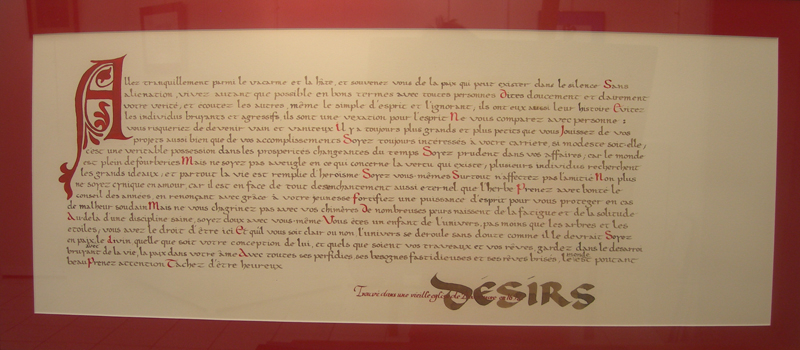 Allez tranquillement parmi le vacarme et la hâte, et souvenez vous de la paix qui peut exister dans le silence Sans
alienation, vivez autant que possible en bons termes avec toutes personnes Dites doucement et clairement
votre verité, et ecoutez les autres, même le simple d'esprit et l'ignorant, ils ont eux aussi leur histoire Evitez
les individus bruyants et agressifs ils sont une vexation pour l'esprit Ne vous comparez avec personne :
vous risqueriez de devenir vain et vaniteux Il y a toujours plus grands et plus petits que vous Jouissez de vos
projets aussi bien que de vos accomplissements Soyez toujours interessés à votre carriere si modeste soit-elle;
c'est une veritable possession dans les prosperités changeantes du temps Soyez prudent dans vos affaires; car le monde
est plein de fourberies Mais ne soyez pas aveugle en ce qui concerne la vertu qui existe; plusieurs individus recherchent
les grands ideaux; et partout la vie est remplie d'heroïsme Soyez vous-mêmes Surtout n'affectez pas l'amitié Non plus
ne soyez cynique en amour, car il est en face de tout desenchantement aussi eternel que l'herbe Prenez avec bonté le
conseil des années, en renonçant avec grâce à votre jeunesse Fortifiez une puissance d'esprit pour vous proteger en cas
de malheur soudain Mais ne vous chagrinez pas avec vos chimères De nombreuses peurs naissent de la fatigue et de la solitude
Au delà d'une discipline saine, soyez doux avec vous-même Vous êtes un enfant de l'univers, pas moins que les arbres et les
etoiles, vous avez le droit d'être ici Et qu'il vous soit clair ou non, l'univers se deroule sans doute comme il le devrait Soyez
en paix avec le divin, quelle que soit votre conception de lui, et quels que soient vos traveaux et vos rêves, gardez dans le desarroi
bruyant de la vie, la paix dans votre âme Avec toutes ses perfidies, ses besognes fastidieuses et ses rêves brisés, le monde est pourtant
beau Prenez attention Tachez d'être heureux
Trouvé dans une vieille eglise de
DÉSIRS